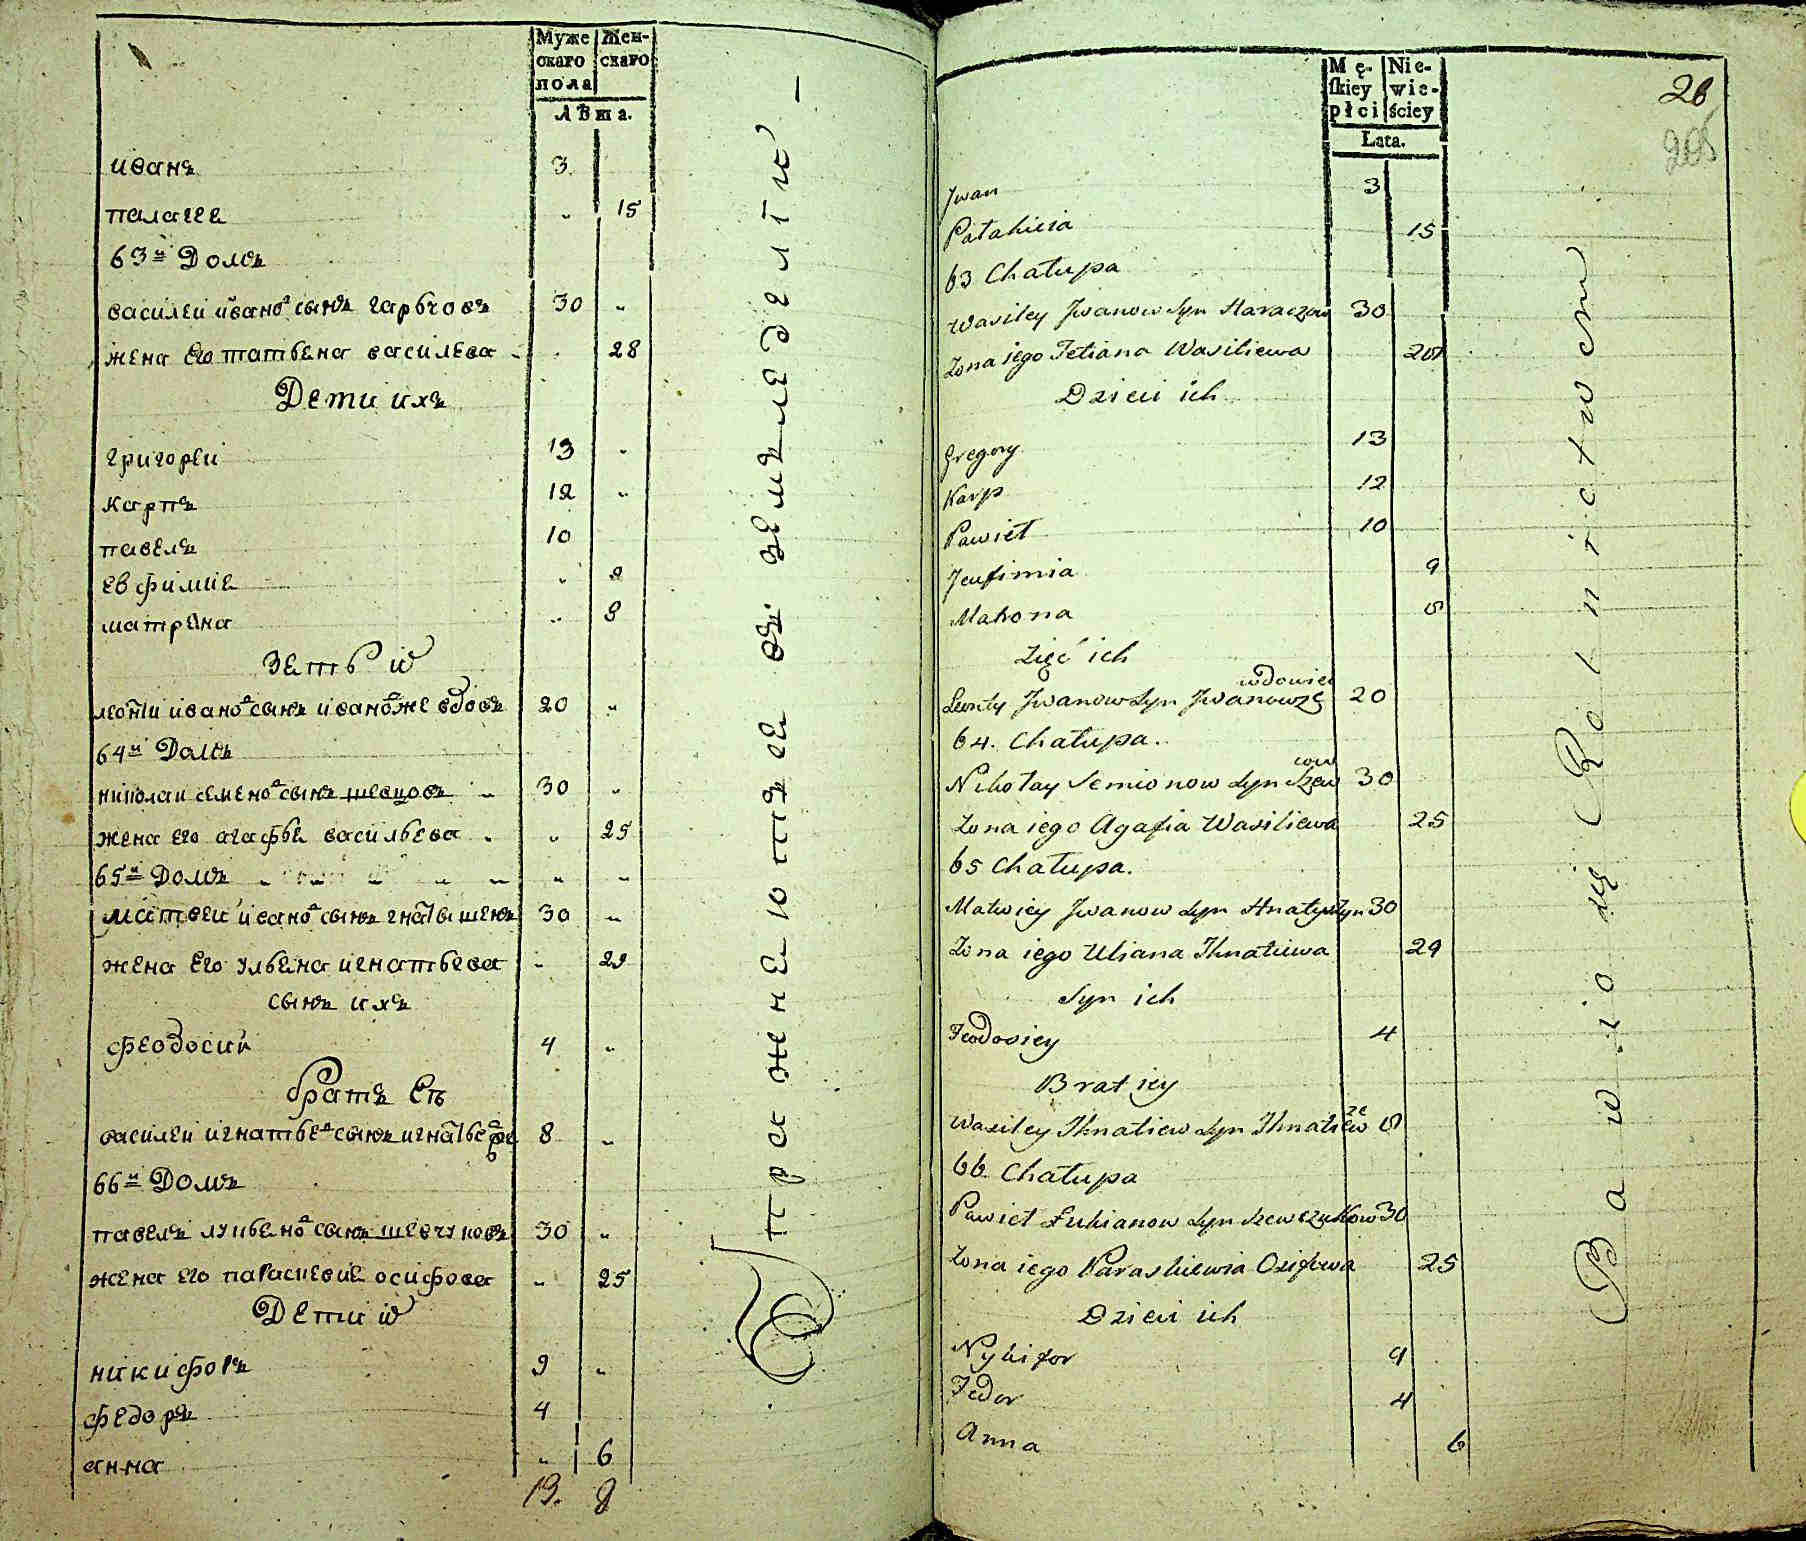 Муже Жен-
скаго скаго
пола
Лѣта.
иванъ 3
палагея " 15
63й Домъ
василеи ивановъ сынъ гарбчовъ 30 "
жена его татьяна василева " 28
Дети ихъ
григореи 13 "
карпъ 12 "
павелъ 10
евфимия " 9
матрена " 8
зеть их
леонтіи ивановъ сынъ ивановже вдовъ 20 "
64й Домъ
николаи семеновъ сынъ шевцовъ " 30 "
жена его агафья васильева " " 25
65й Домъ " " " " " " "
матвеи ивановъ сынъ гнатышенъ 30 "
жена его ульяна игнатьева " 29
сынъ ихъ
феодосии 4 "
братъ еѣ
василеи игнатьевъ сынъ 8 "
66й Домъ
павелъ лукьяновъ сынъ шевчуковъ 30 "
жена его параскевия осифова " 25
Дети их
никифоръ 9 "
федоръ 4
анна " 6
13. 8
упражняются въ земледелїи —
Mę- Nie-
ſkiey wie-
płci ściey
Lata.
26
205
Jwan 3
Pałahicia 15
63 Chałupa
Wasiley Jwanow Syn Haraczow 30
Żona iego Tetiana Wasiliewa 28
Dzieci ich
Gregory 13
Karp 12
Paweł 10
Jeufimia 9
Matrona 8
Zięć ich
wdowiec
Leonty Jwanow Syn Jwanowże 20
64. Chałupa.
cow
Nikołay Semionow Syn Szew 30
Żona iego Agafia Wasiliewa 25
65 Chałupa.
Matwiey Jwanow Syn Hnatyszyn 30
Żona iego Uliana Ihnatiewa 29
Syn ich
Feodosiey 4
Brat iey
że
Wasiley Ihnatiew Syn Ihnatiew 8
66 Chałupa
Pawieł Łukianow Syn Szewczukow 30
Żona iego Paraskiewia Osifowa 25
Dzieci ich
Nykifor 9
Fedor 4
Anna 6
Bawio się Rolnictwem